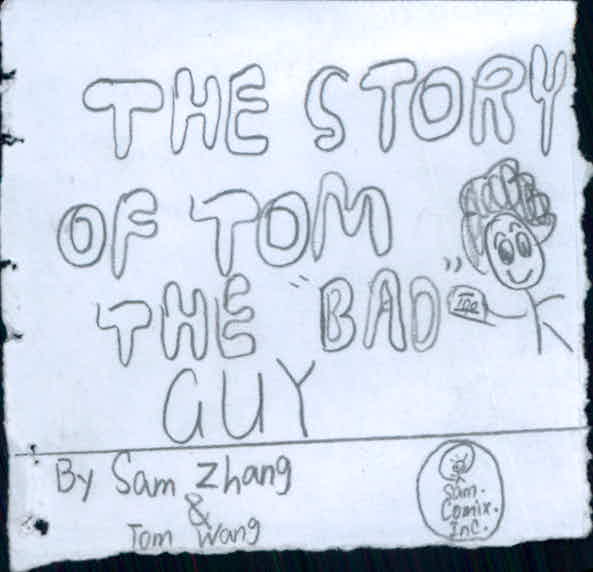 THE STORY
OF TOM
THE "BAD"
GUY
By Sam Zhang
&
Tom Wang
Sam.
Comix.
Inc.